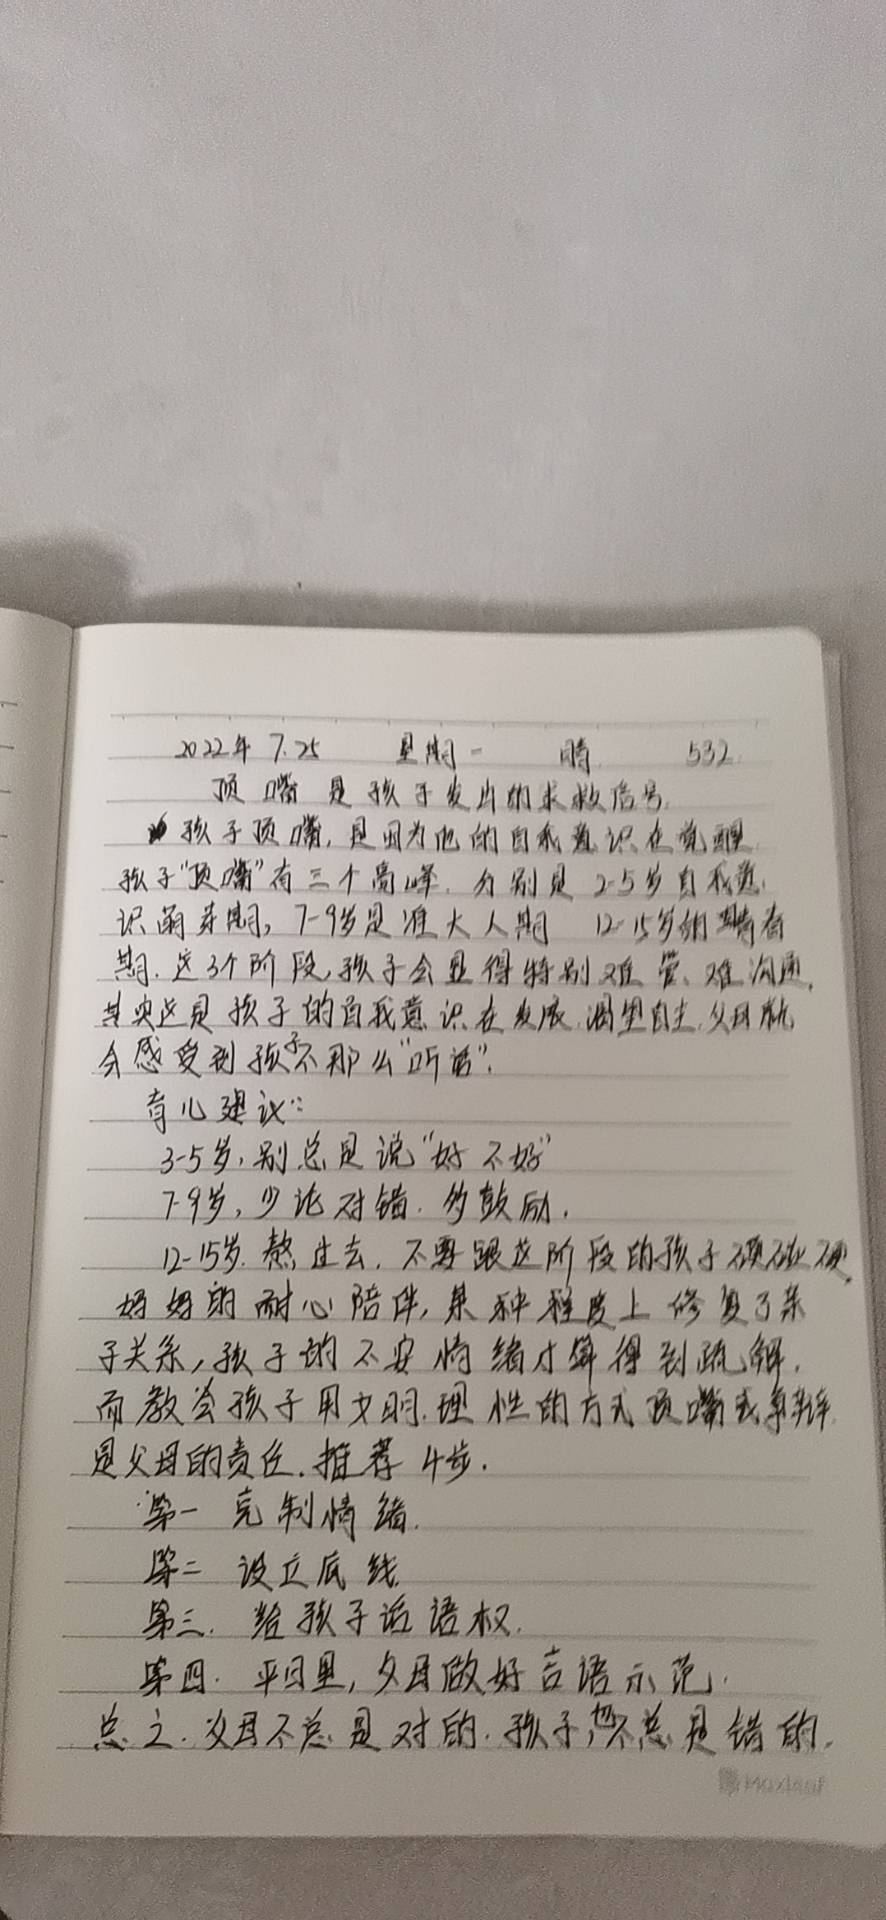 2022年 7.25 星期一 晴 532
顶嘴是孩子发出的求救信号.
孩子顶嘴, 是因为他的自我意识在觉醒
孩子"顶嘴"有三个高峰. 分别是 2-5岁自我意
识萌芽期, 7-9岁是准大人期 12-15岁的青春
期. 这3个阶段, 孩子会显得特别难管、难沟通.
其实这是孩子的自我意识在发展. 渴望自主. 父母就
会感受到孩子不那么"听话".
育儿建议:
3-5岁, 别总是说"好不好"
7-9岁, 少论对错. 多鼓励.
12-15岁. 熬过去. 不要跟这阶段的孩子硬碰硬.
妈妈的耐心陪伴, 某种程度上修复了亲
子关系, 孩子的不安情绪才算得到疏解.
而教会孩子用文明.理性的方式顶嘴或争辩
是父母的责任. 推荐4步.
第一 克制情绪.
第二 设立底线
第三. 给孩子话语权.
第四. 平日里, 父母做好言语示范.
总之. 父母不总是对的. 孩子也不总是错的.
Maxleaf